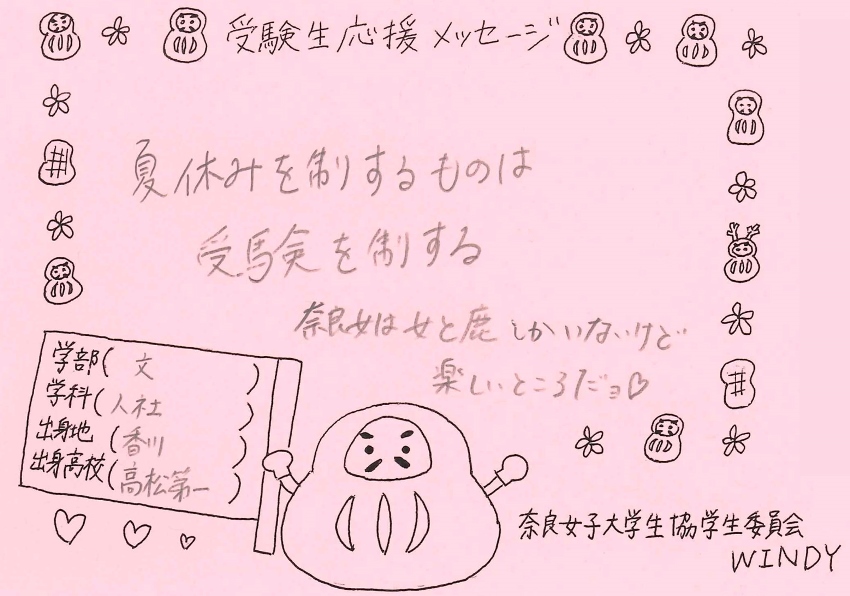 受験生応援メッセージ
夏休みを制するものは
受験を制する
奈良女は女と鹿しかいないけど
楽しいところだョ♡
学部(文)
学科(人社)
出身地(香川)
出身高校(高松第一)
奈良女子大学生協学生委員会
WINDY